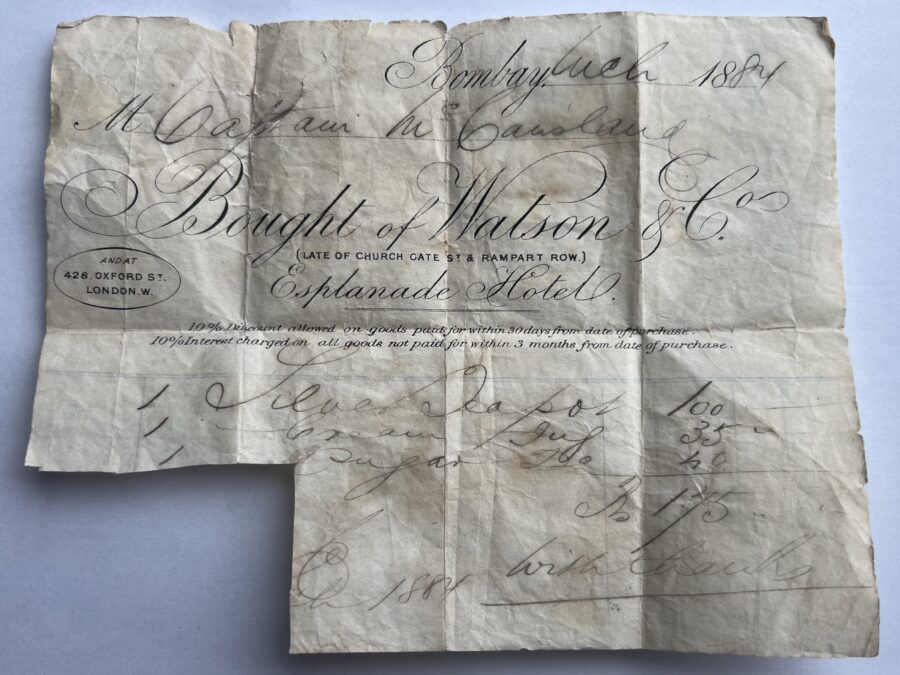 Bombay, Mch 1884
M Captain McCausland
Bought of Watson & Co.
(LATE OF CHURCH GATE ST & RAMPART ROW.)
Esplanade Hotel.
AND AT
428. OXFORD ST.
LONDON. W.
10% Discount allowed on goods paid for within 30 days from date of purchase.
10% Interest charged on all goods not paid for within 3 months from date of purchase.
1 Silver Teapot 100
1 Cream Jug 35
1 Sugar Do 40
Rs 175
With thanks
1884